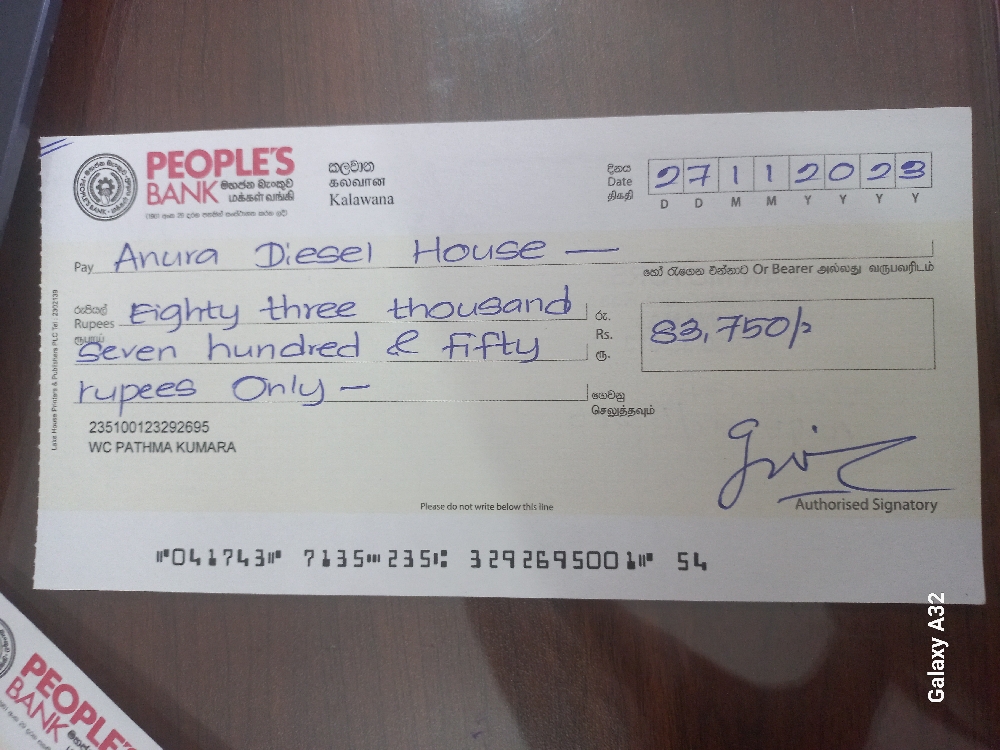 PEOPLE'S
BANK මහජන බැංකුව
மக்கள் வங்கி
කලවාන
கலவான
Kalawana
දිනය
Date
திகதி
27112023
D D M M Y Y Y Y
Pay Anura Diesel House —
හෝ රැගෙන එන්නාට Or Bearer அல்லது வருபவரிடம்
රුපියල්
Rupees Eighty three thousand
ரூபாய்
Seven hundred & fifty
rupees Only —
රු.
Rs.
ரூ.
83,750/-
ගෙවනු
செலுத்தவும்
235100123292695
WC PATHMA KUMARA
Authorised Signatory
Please do not write below this line
⑈041743⑈ 7135⑉235⑆ 3292695001⑈ 54
Lake House Printers & Publishers PLC Tel : 2302139
PEOPLE'S
BANK
Galaxy A32